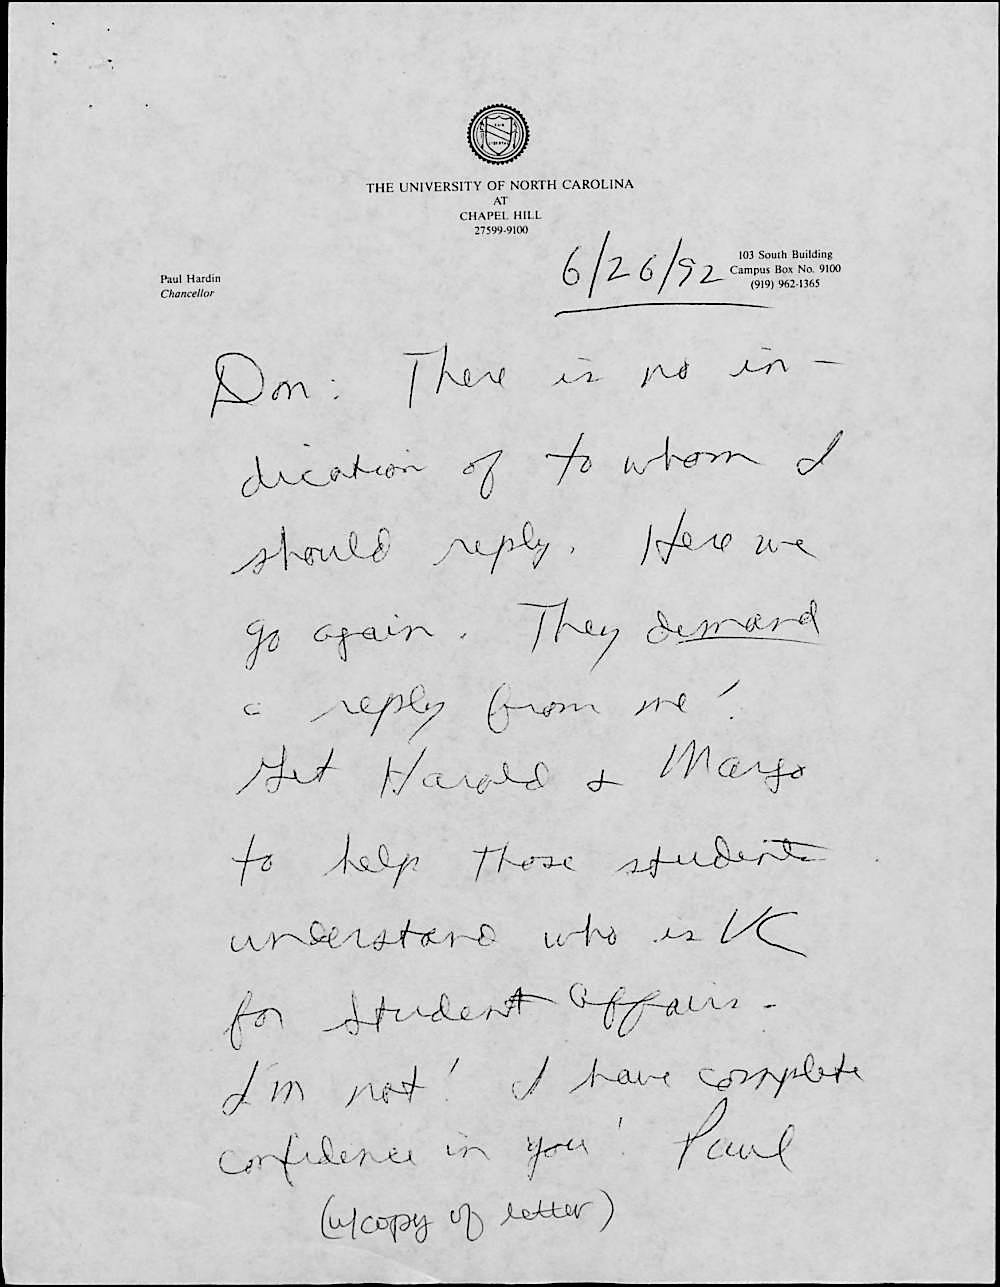 THE UNIVERSITY OF NORTH CAROLINA
AT
CHAPEL HILL
27599-9100
6/26/92
103 South Building
Campus Box No. 9100
(919) 962-1365
Paul Hardin
Chancellor
Don: There is no in-
dication of to whom I
should reply. Here we
go again. They demand
a reply from me!
Get Harold & Margo
to help those students
understand who is VC
for Student Affairs -
I'm not! I have complete
confidence in you! Paul
(w/copy of letter)